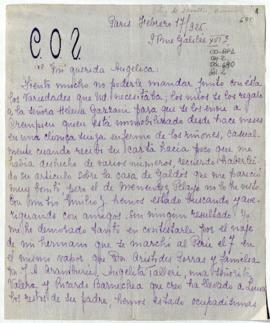 Paris Febrero 17/926
9 Rue Galilée XVI
695
COS
Mi querida Angélica.
Siento mucho no poderle mandar junto con esta
los Variedades que Ud necesitaba, los míos se los regalé
a la Señora Helena Garzani para que se los envie a
quien está inmobilizado desde hace meses
en una clínica suiza enfermo de los riñones, casual-
mente cuando recibí su carta hacía poco que me
había deshecho de varios números, recuerdo haber lei-
do su artículo sobre la casa de Galdós que me pareció
muy bonito pero el de Menendez Pelayo no lo he visto.
Con mi tio Emilio J. hemos estado buscando y ave-
riguando con amigos. Sin ningun resultado! Yo
me he demorado tanto en contestarle por el viaje de
de mi hermano que se marchó al Perú el 7 en
el mismo vapor que Don Aristides Porras y familia
Aramburú, Angelita Talleri, una Señorita
Valera y Ricardo Barnechea que creo ha llevado a Lima
los restos de su padre, hemos estado ocupadísimas